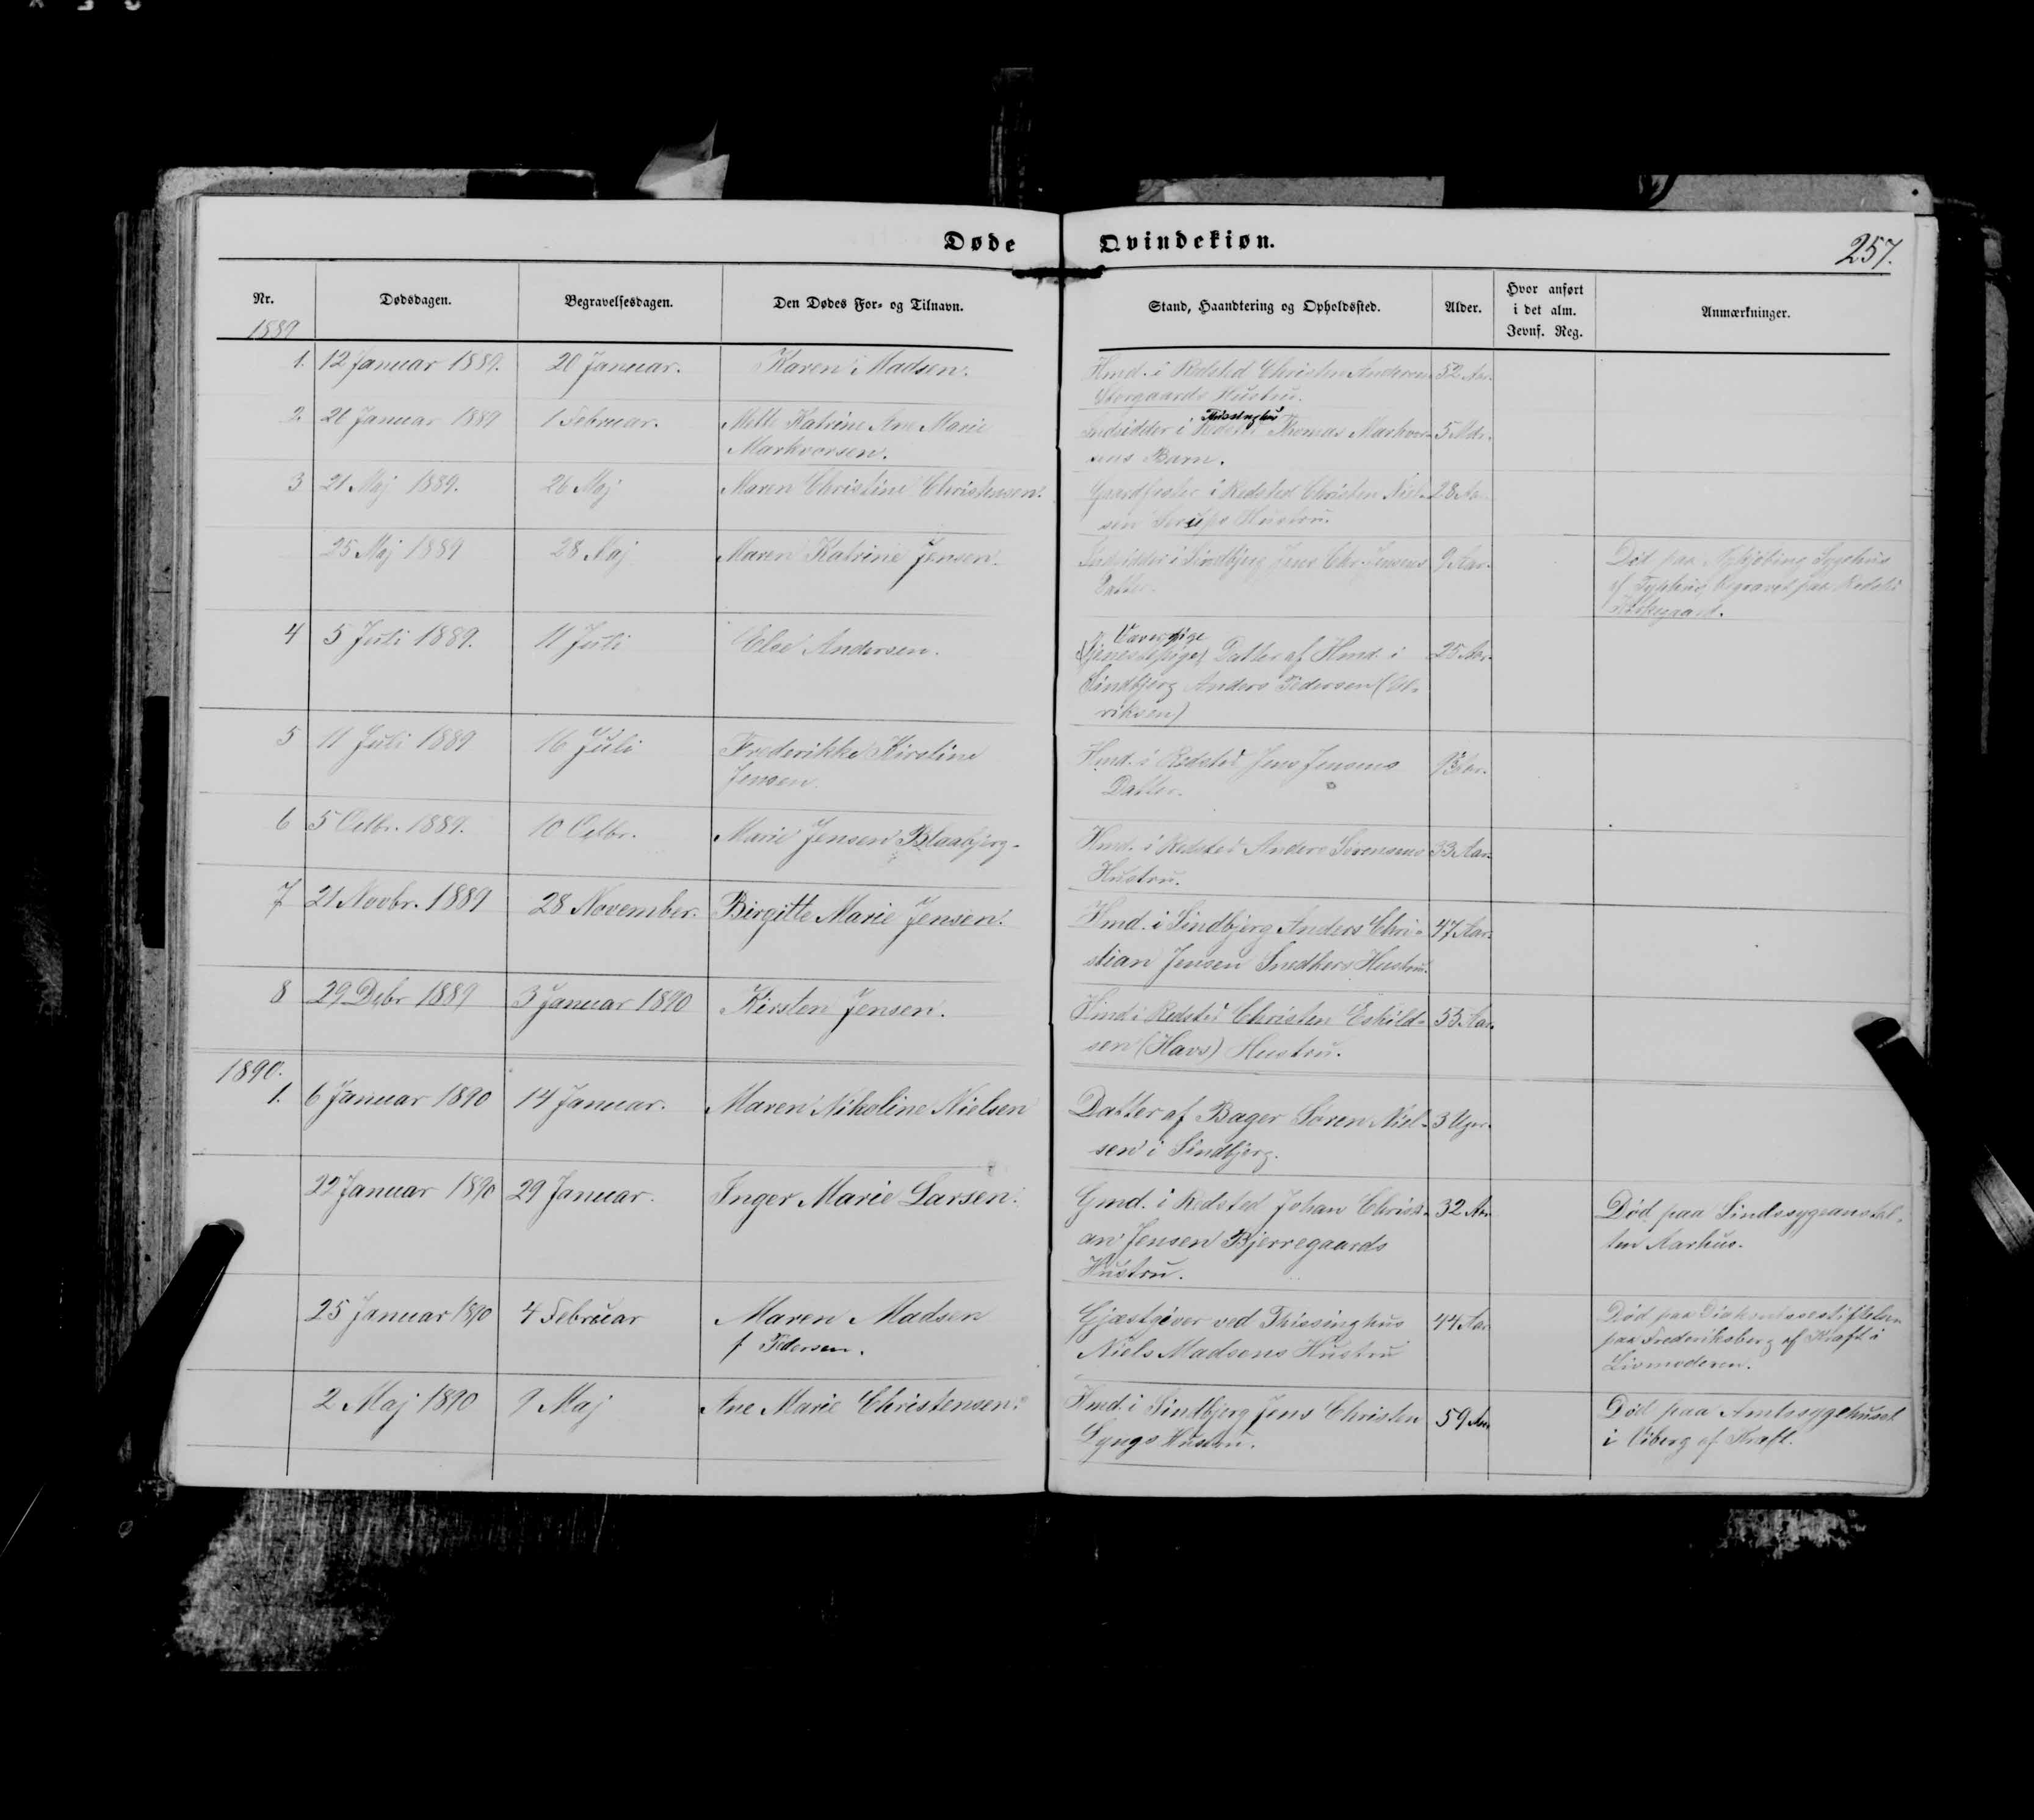 Døde Qvindekiøn.
257.
Nr. Dødsdagen. Begravelsesdagen. Den Dødes For- og Tilnavn. Stand, Haandtering og Opholdssted. Alder. Hvor anført i det alm. Jevnf. Reg. Anmærkninger.
1889
1. 12 Januar 1889. 20 Januar. Karen Madsen. Hmd. i Redsted Christen Andersen 52 Aar.
Storgaards Hustru.
2. 26 Januar 1889 1 Februar. Mette Katrine Ane Marie Indsidder i Thissinghus Thomas Markvor- 5 Mdr.
Markvorsen. sens Barn.
3 21 Maj 1889. 26 Maj Maren Christine Christensen. Gaardfæster i Redsted Christen Niel- 28 Aar
sen Hustru.
25 Maj 1889 28 Maj Maren Katrine Jensen. Indsidder i Sindbjerg Jens Chr. Jensens 9 Aar. Død paa Nykjøbing Sygehus
Datter. af Typhus, begravet paa Redsted
Kirkegaard.
4 5 Juli 1889. 11 Juli Else Andersen. Væverpige
(Tjenestepige) Datter af Hmd. i 25 Aar.
Sindbjerg Anders Pedersen (Ul-
riksen)
5 11 Juli 1889 16 Juli Frederikke Kirstine Hmd. i Redsted Jens Jensens
Jensen. Datter.
6 5 Octbr. 1889. 10 Octbr. Marie Jensen Blaabjerg. Hmd. i Redsted Anders Sørensens 33 Aar.
Hustru.
7 21 Novbr. 1889 28 November. Birgitte Marie Jensen. Hmd. i Sindbjerg Anders Chri- 47 Aar.
stian Jensen Snedkers Hustru.
8 29 Debr 1889 3 Januar 1890 Kirsten Jensen. Hmd i Redsted Christen Eskild- 55 Aar.
sen (Havs) Hustru.
1890.
1. 6 Januar 1890 14 Januar. Maren Nikoline Nielsen Datter af Bager Søren Niel- 3 Uger.
sen i Sindbjerg.
22 Januar 1890 29 Januar. Inger Marie Larsen. Gmd. i Redsted Johan Christi- 32 Aar Død paa Sindssygeanstal-
an Jensen Bjerregaards ten Aarhus.
Hustru.
25 Januar 1890 4 Februar Maren Madsen Gjæstgiver ved Thissinghus 44 Aar Død paa Diakonissestiftelsen
f Pedersen. Niels Madsens Hustru paa Frederiksberg af Kræft i
Livmoderen.
2 Maj 1890 9 Maj Ane Marie Christensen. Hmd. i Sindbjerg Jens Christen 59 Aar Død paa Amtssygehuset
Lyngs Hustru. i Viborg af Kræft.